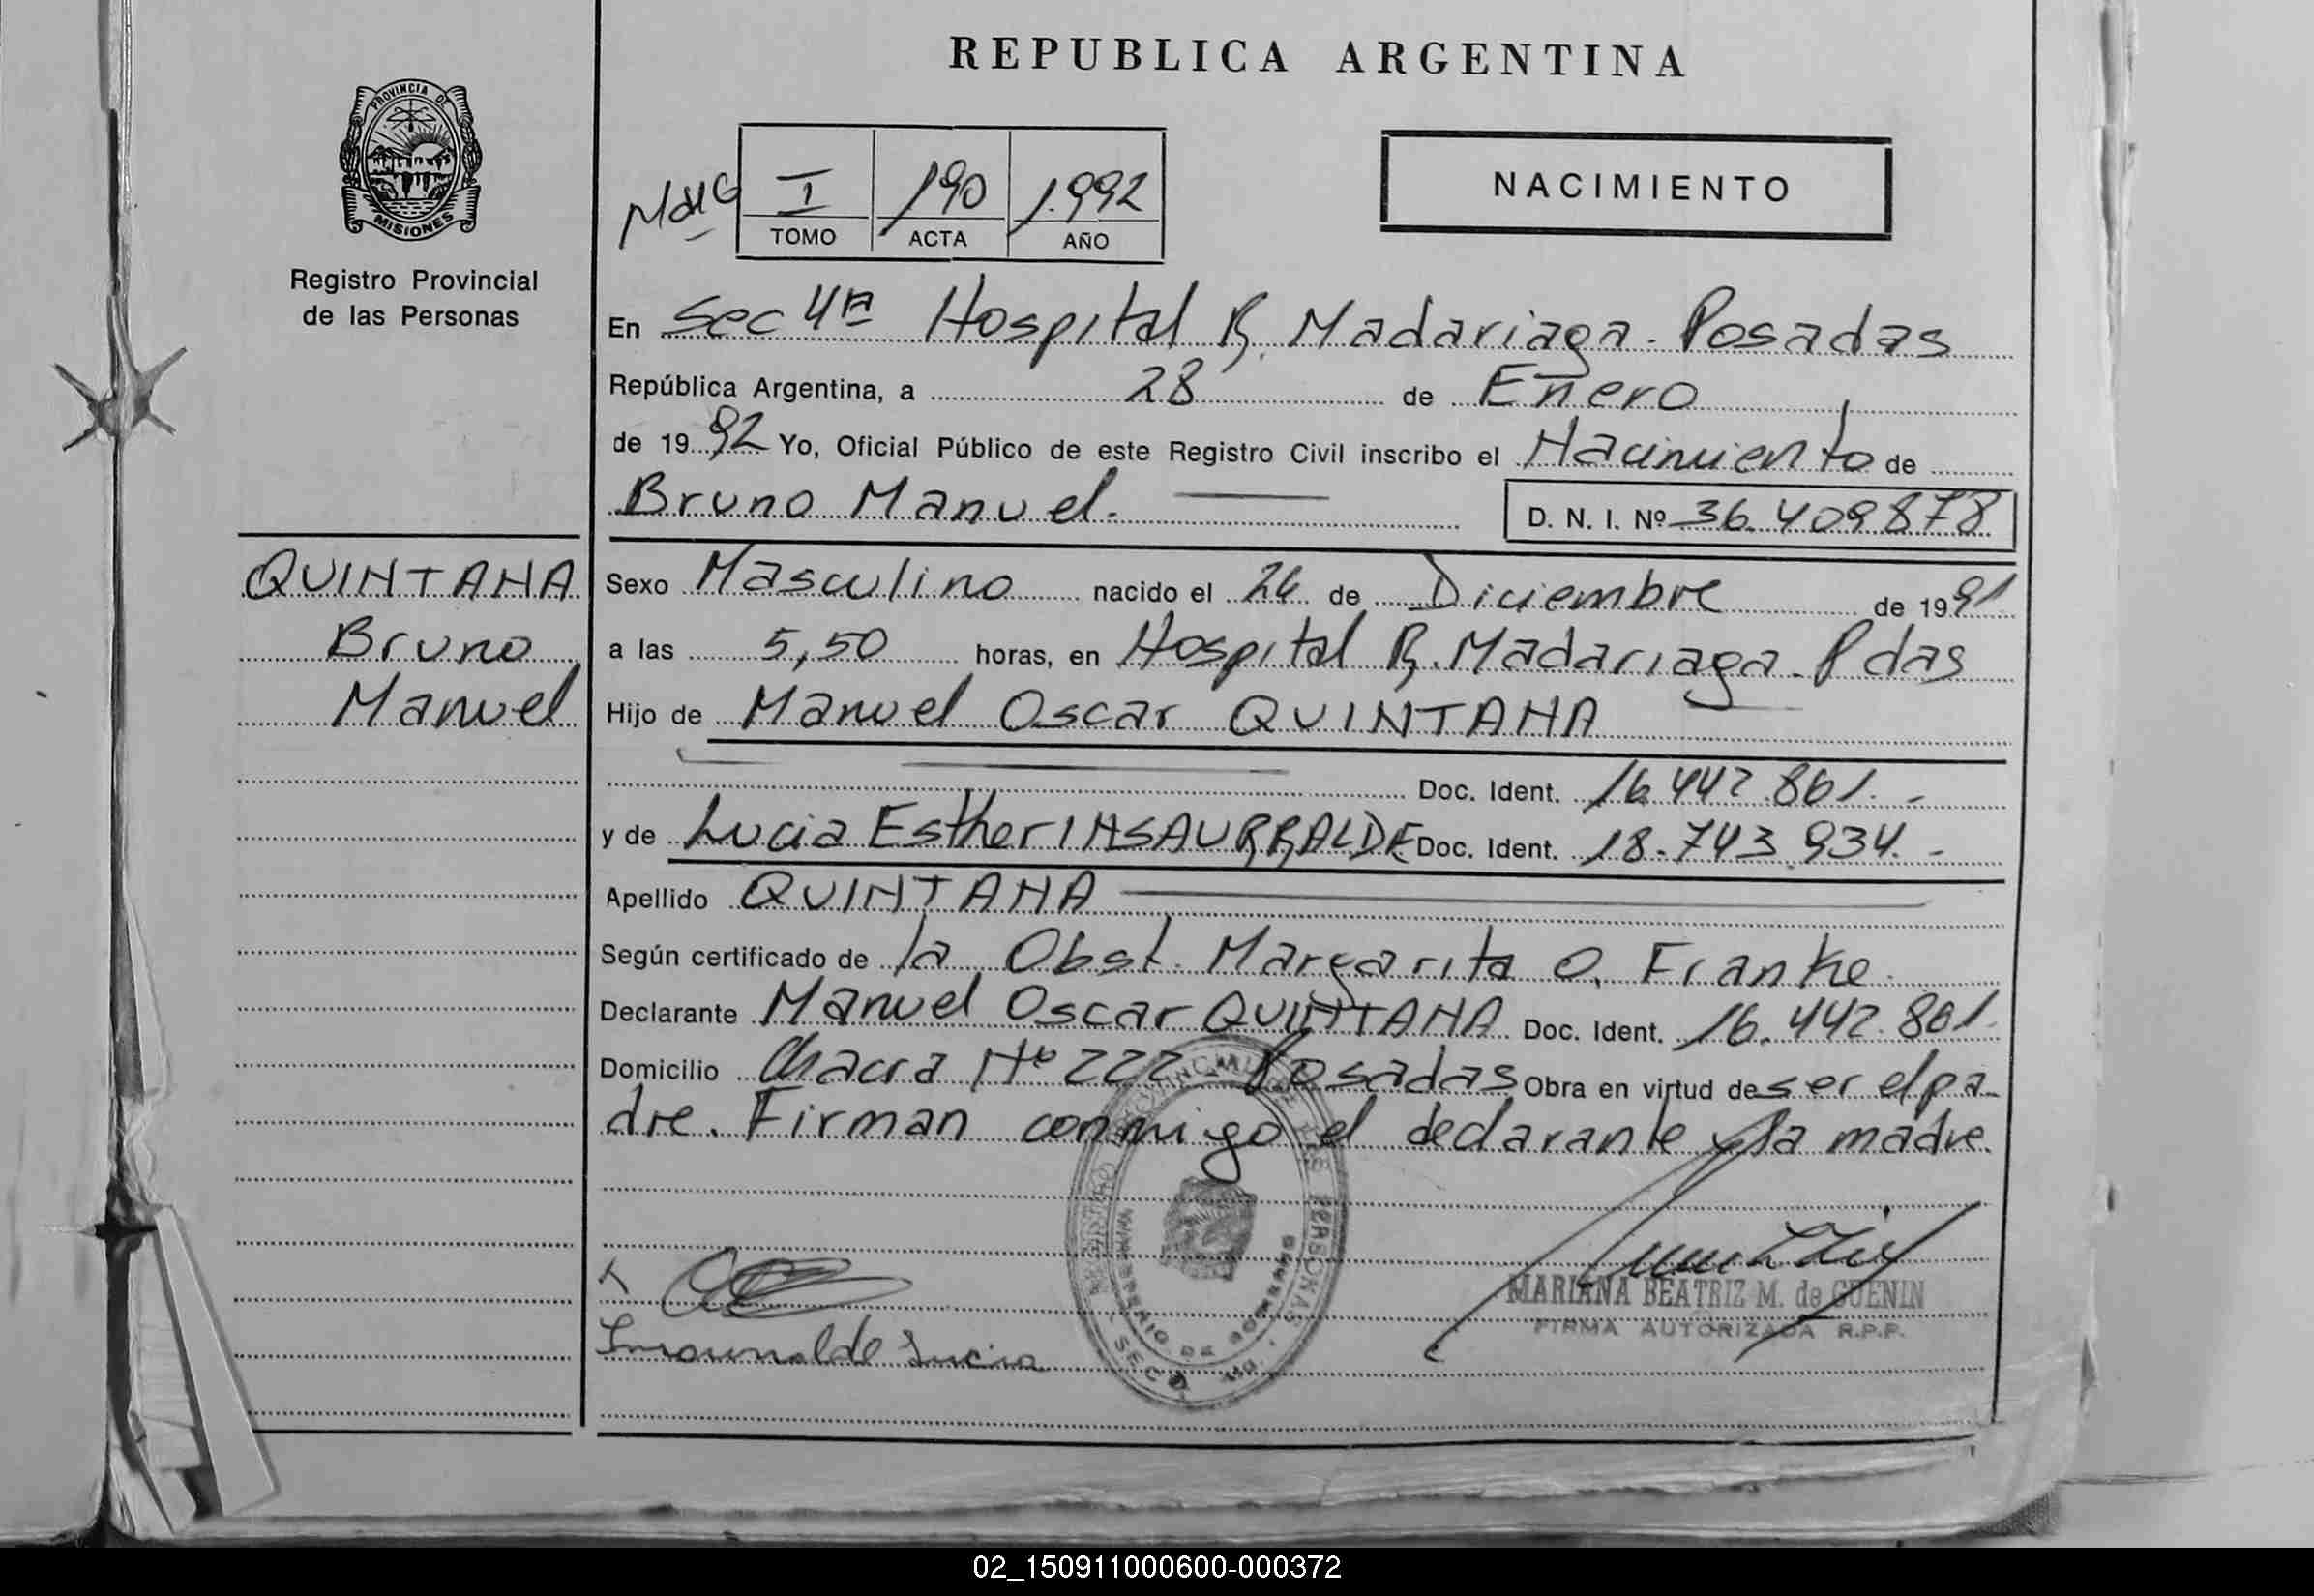 REPUBLICA ARGENTINA
PROVINCIA DE MISIONES
Registro Provincial
de las Personas
I 190 1.992
TOMO ACTA AÑO
NACIMIENTO
En Sec 4ta Hospital R. Madariaga - Posadas
República Argentina, a 28 de Enero
de 1992 Yo, Oficial Público de este Registro Civil inscribo el Nacimiento de
Bruno Manuel.
D. N. I. Nº 36.409878
QUINTANA
Bruno
Manuel
Sexo Masculino nacido el 26 de Diciembre de 1991
a las 5,50 horas, en Hospital R. Madariaga - Pdas
Hijo de Manuel Oscar QUINTANA
Doc. Ident. 16.442.861.-
y de Lucia Esther INSAURRALDE Doc. Ident. 18.743.934.-
Apellido QUINTANA
Según certificado de la Obst. Margarita O. Franke.
Declarante Manuel Oscar QUINTANA Doc. Ident. 16.442.861.
Domicilio Chacra Nº 222 Posadas Obra en virtud de ser el pa-
dre. Firman conmigo el declarante y la madre.
MARIANA BEATRIZ M. de GUENIN
FIRMA AUTORIZADA R.P.P.
Insaurralde Lucia
02_150911000600-000372